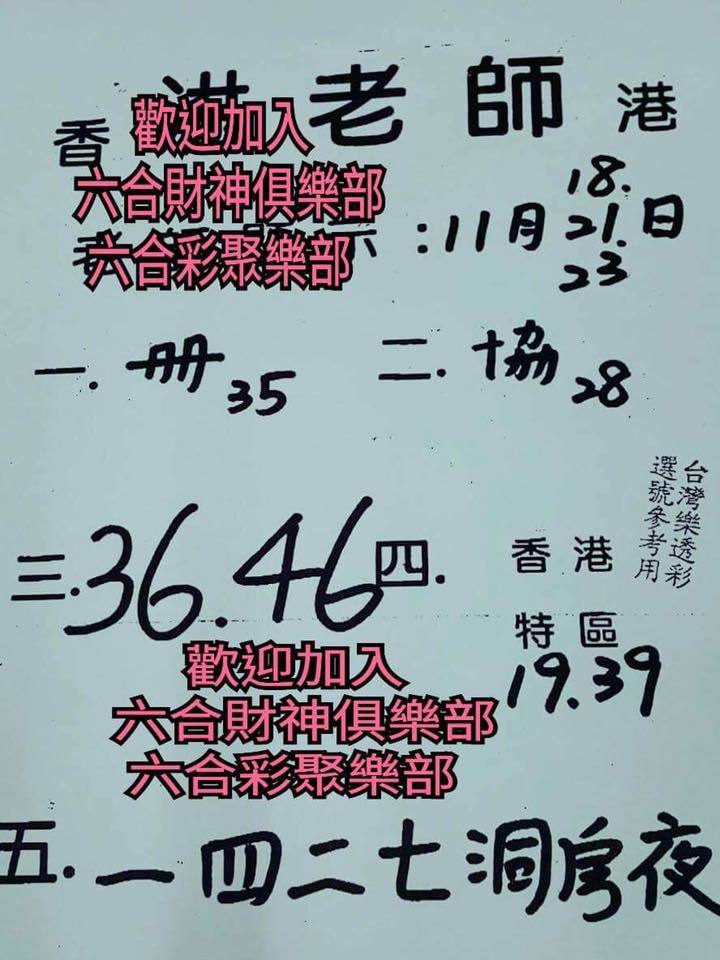 香港老師港
歡迎加入
六合財神俱樂部
六合彩聚樂部
示：11月18.21.23日
一.冊35 二.協28
台灣樂透彩
選號參考用
三.36.46 四.香港
特區
19.39
歡迎加入
六合財神俱樂部
六合彩聚樂部
五.一四二七洞房夜